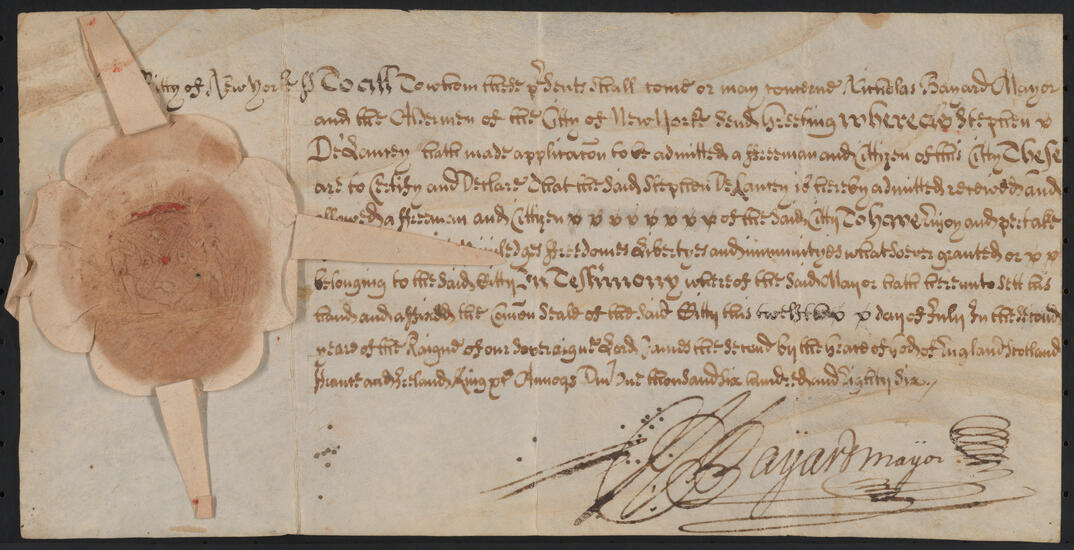 Citty of New Yorke ss To all To whom these p'sents shall come or may concerne Nicholas Bayard Mayor
and the Aldermen of the Citty of New Yorke send Greeting whereas Stephen x
De Lancey hath made applicacōn to be admitted a ffreeman and Citizen of this Citty These
are to Certify and Declare That the said Stephen De Lancey is hereby admitted received and
allowed a ffreeman and Cittizen x x x x x x x of the said Citty To have Enjoy and pertake
ledges ffreedomes Libertyes and immunityes whatsoever granted or x x
belonging to the said Citty In Testimony whereof the said Mayor hath hereunto sett his
hand and affixed the Com̄on Seale of the said Citty this twelfth x x day of July In the second
yeare of the Raigne of our Soveraigne Lord James the Second by the Grace of God of England Scotland
ffrance and Ireland King &c Annoq Dm̄ One thousand six hundred and Eighty Six
N Bayard mayor